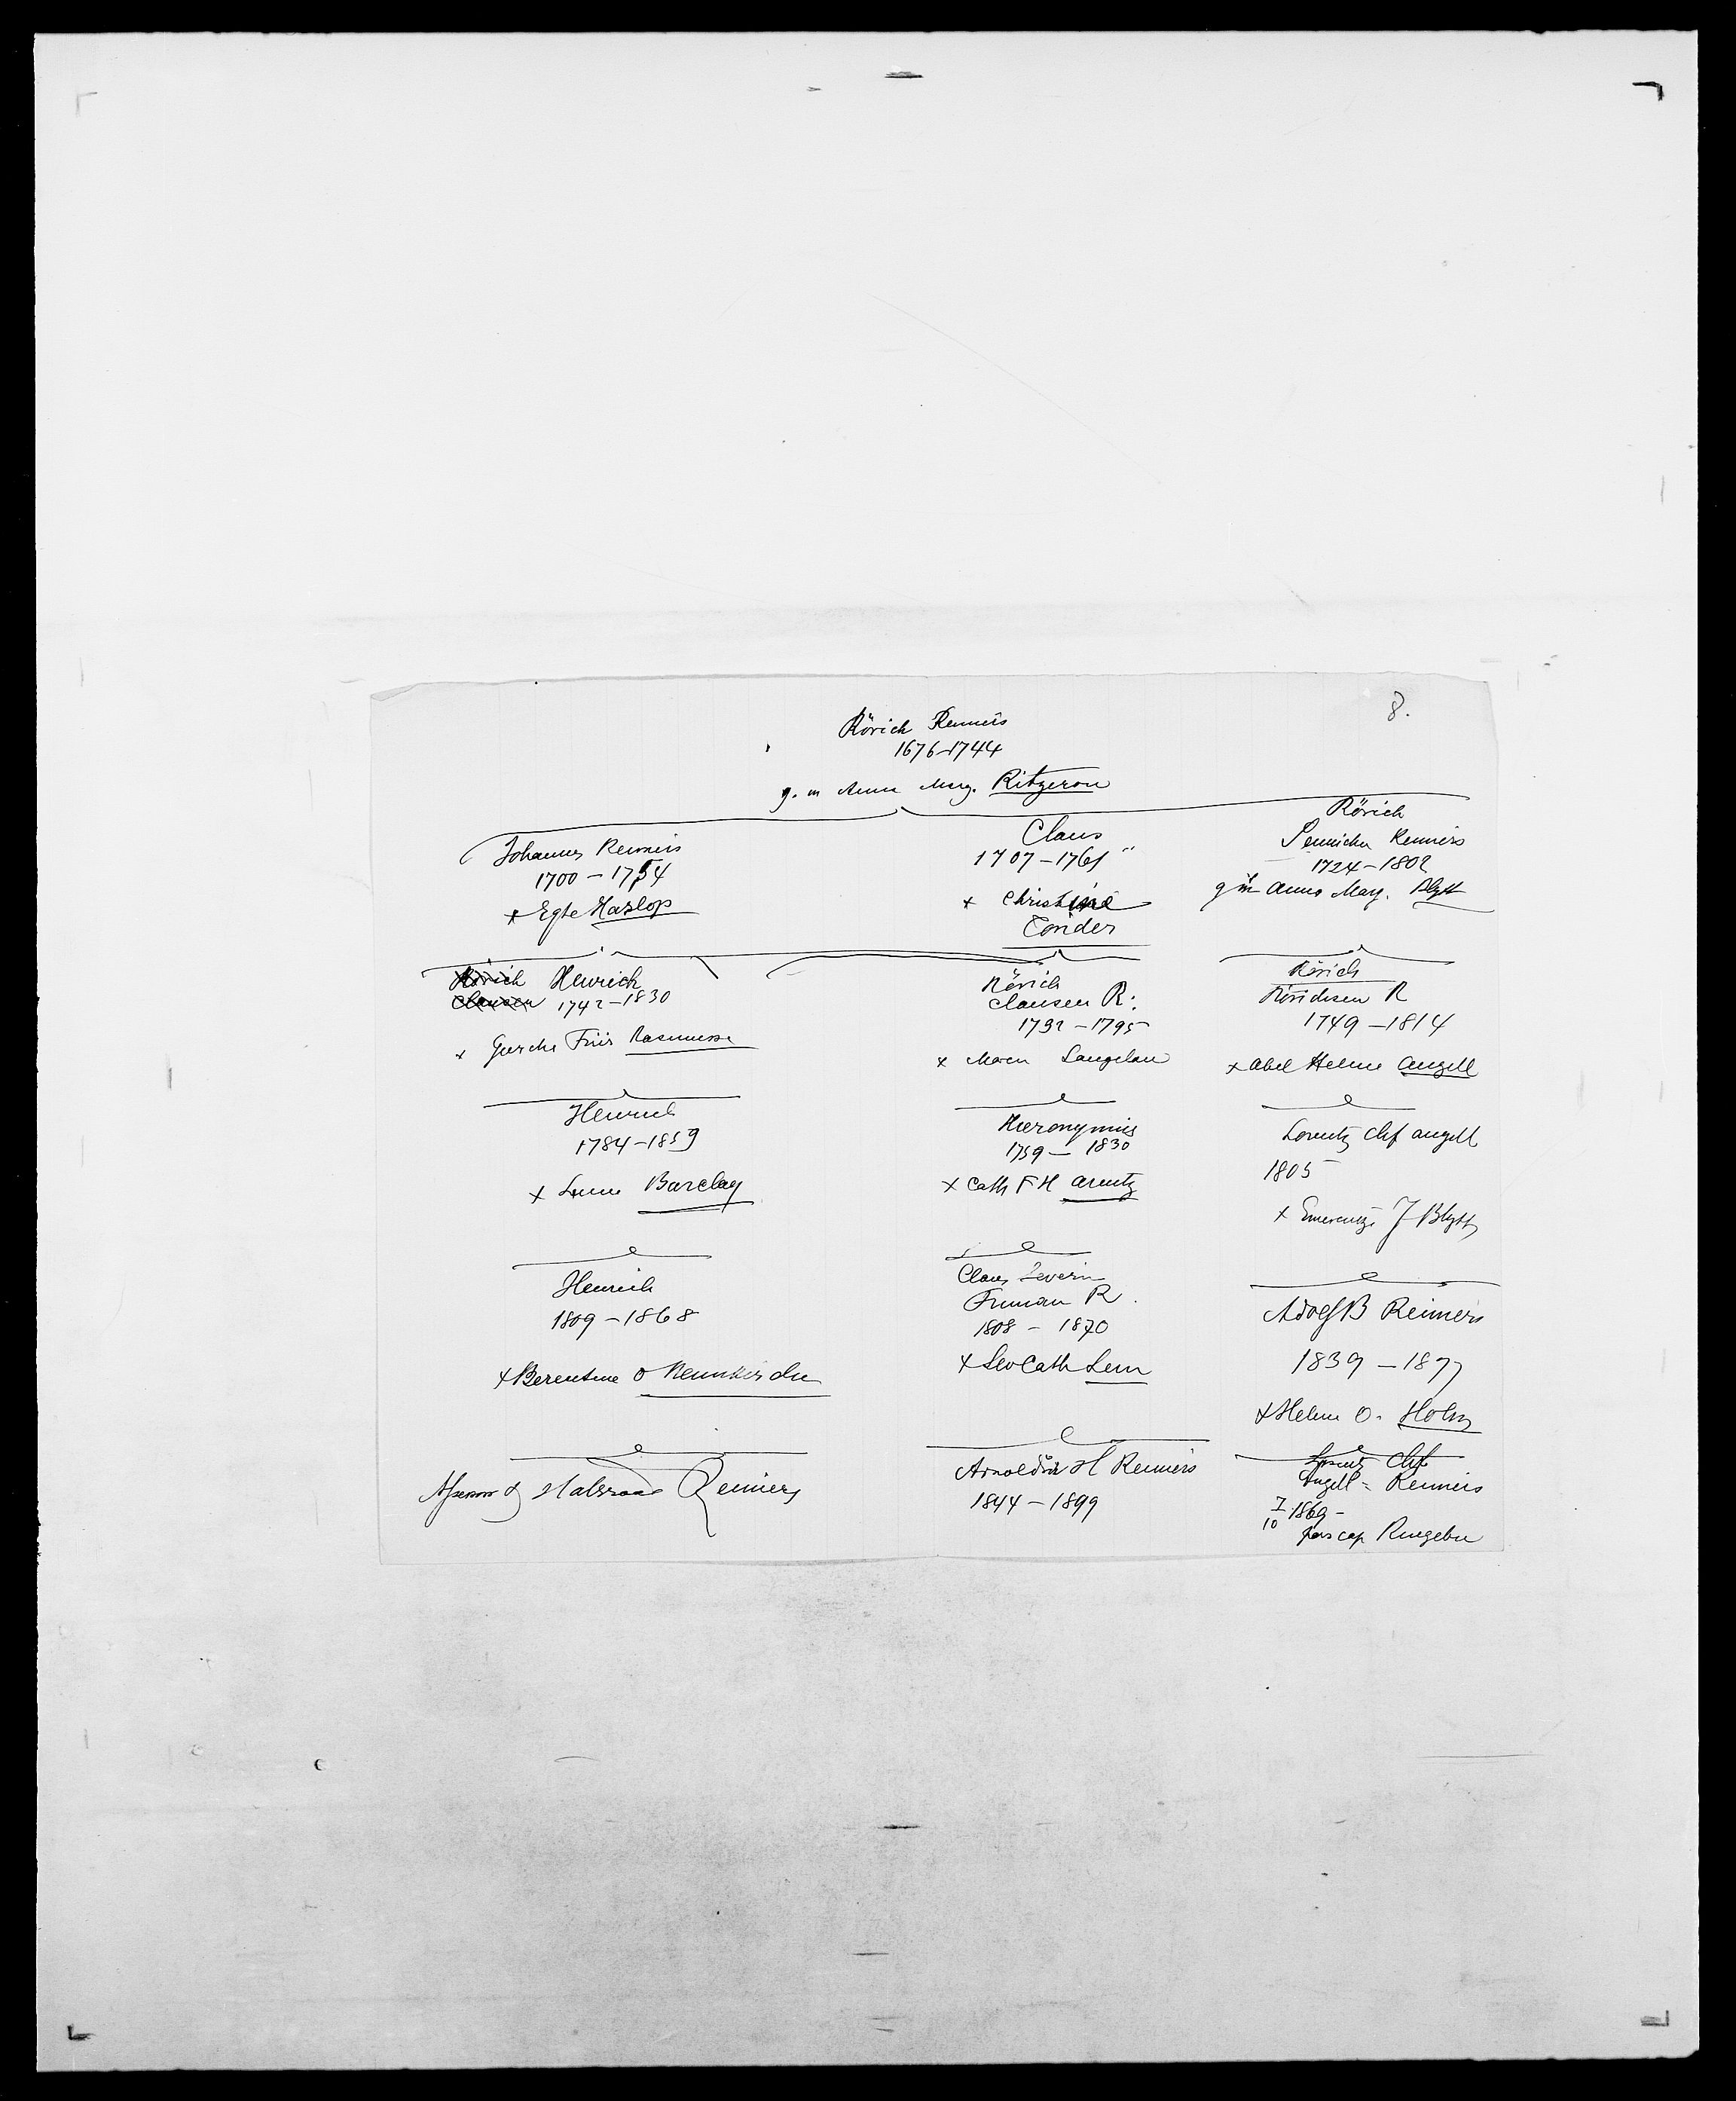 8.
Rörich Reimers
1676-1744
g. m Anna Marg. Ritzerow
Johannes Reimers
1700 - 1754
x Egte Hazlop
Claus
1707 - 1761
x Christine
Tönder
Rörich
Reimers
1724 - 1802
g m Anna Marg. Blytt
Rörich Henrich
Clausen 1742 - 1830
x Gerche
Rörich
Clausen R.
1732 - 1795
x Maren
Rörich
Rörichsen R
1749 - 1814
x Abel Helene Angell
Henrich
1784 - 1859
x Barclay
Hieronymus
1759 - 1830
x Cath F H Arentz
Lorentz Chf Angell
1805
x Emerentze J Blytt
Henrich
1809 - 1868
x Berentine O Neumkirchn
Claus Severin
R.
1808 - 1870
x Lev Cath Lem
Adolf B Reimers
1839 - 1877
x Helene O. Holm
Assessor Reimers
H Reimers
1844 - 1899
Lorentz Chf
Angell = Reimers
7/10 1869 -
pers cap Ringebu